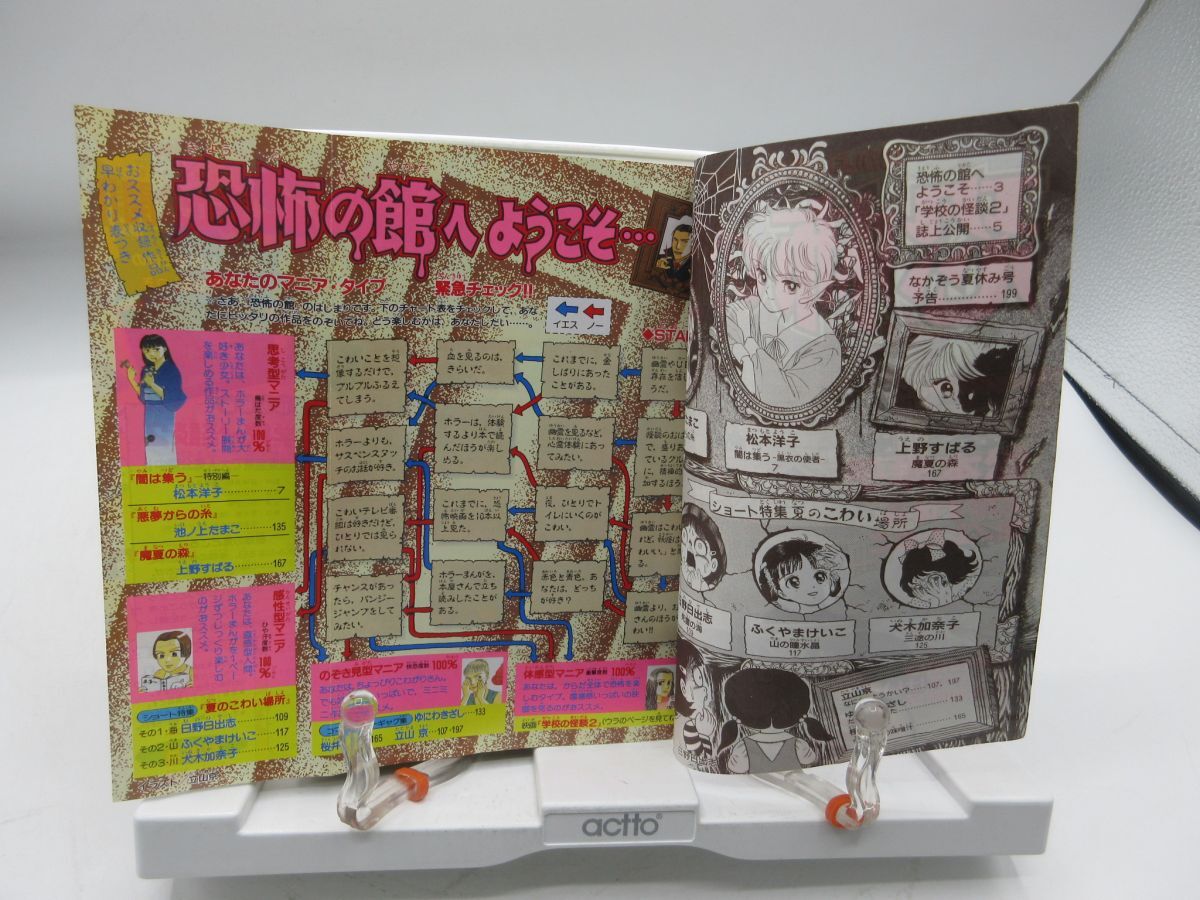 おススメ収録作品
早わかり表つき
恐怖の館へようこそ…
あなたのマニア・タイプ
緊急チェック!!
さあ、「恐怖の館」のはじまりです。下のチャート表をチェックして、あな
たにピッタリの作品をのぞいてね。どう楽しむかは、あなたしだい……。
イエス
ノー
◆STA
こわいことを想
像するだけで、
ブルブルふるえ
てしまう。
血を見るのは、
きらいだ。
これまでに、金
しばりにあった
ことがある。
ホラーよりも、
サスペンスタッ
チのお話が好き。
ホラーは、体験
するより本で読
んだほうが楽し
める。
幽霊を見るなど、
心霊体験にあっ
てみたい。
こわいテレビ番
組は好きだけど、
ひとりでは見ら
れない。
これまでに、恐
怖映画を10本以
上見た。
夜、ひとりでト
イレにいくのが
こわい。
チャンスがあっ
たら、バンジー
ジャンプをして
みたい。
ホラーまんがを、
本屋さんで立ち
読みしたことが
ある。
赤色と青色、あ
なたは、どっち
が好き?
思考型マニア
100%
あなたは、ホラーまんが大
好き少女。ストーリー展開
を楽しめる作品がおススメ。
『闇は集う』-特別編-
松本洋子……7
『悪夢からの糸』
池ノ上たまこ……135
『魔夏の森』
上野すばる……167
感性型マニア
100%
あなたは、直感型人間。
ホラーまんがを1ペー
ジずつじっくり楽しむ
のがおススメ。
ショート特集
『夏のこわい場所』
その1・海 日野日出志……109
その2・山 ふくやまけいこ……117
その3・川 犬木加奈子……125
イラスト 立山京
のぞき見型マニア
100%
あなたは、ちょっぴりこわがりさん。
ギャグ集
ゆにわきざし……133
桜井
165
立山 京……107・197
体感型マニア
100%
あなたは、からだ全体で恐怖を楽
しむタイプ。臨場感いっぱいの映
画を見るのがおススメ。
映画『学校の怪談2』(ウラのページを見てね
恐怖の館へ
ようこそ……3
「学校の怪談2」
誌上公開……5
なかぞう夏休み号
予告……………199
松本洋子
闇は集う-黒衣の使者-
7
上野すばる
魔夏の森
167
ショート特集 夏のこわい場所
ふくやまけいこ
山の瞳水晶
117
犬木加奈子
三途の川
125
立山京
107, 197
133
165
actto